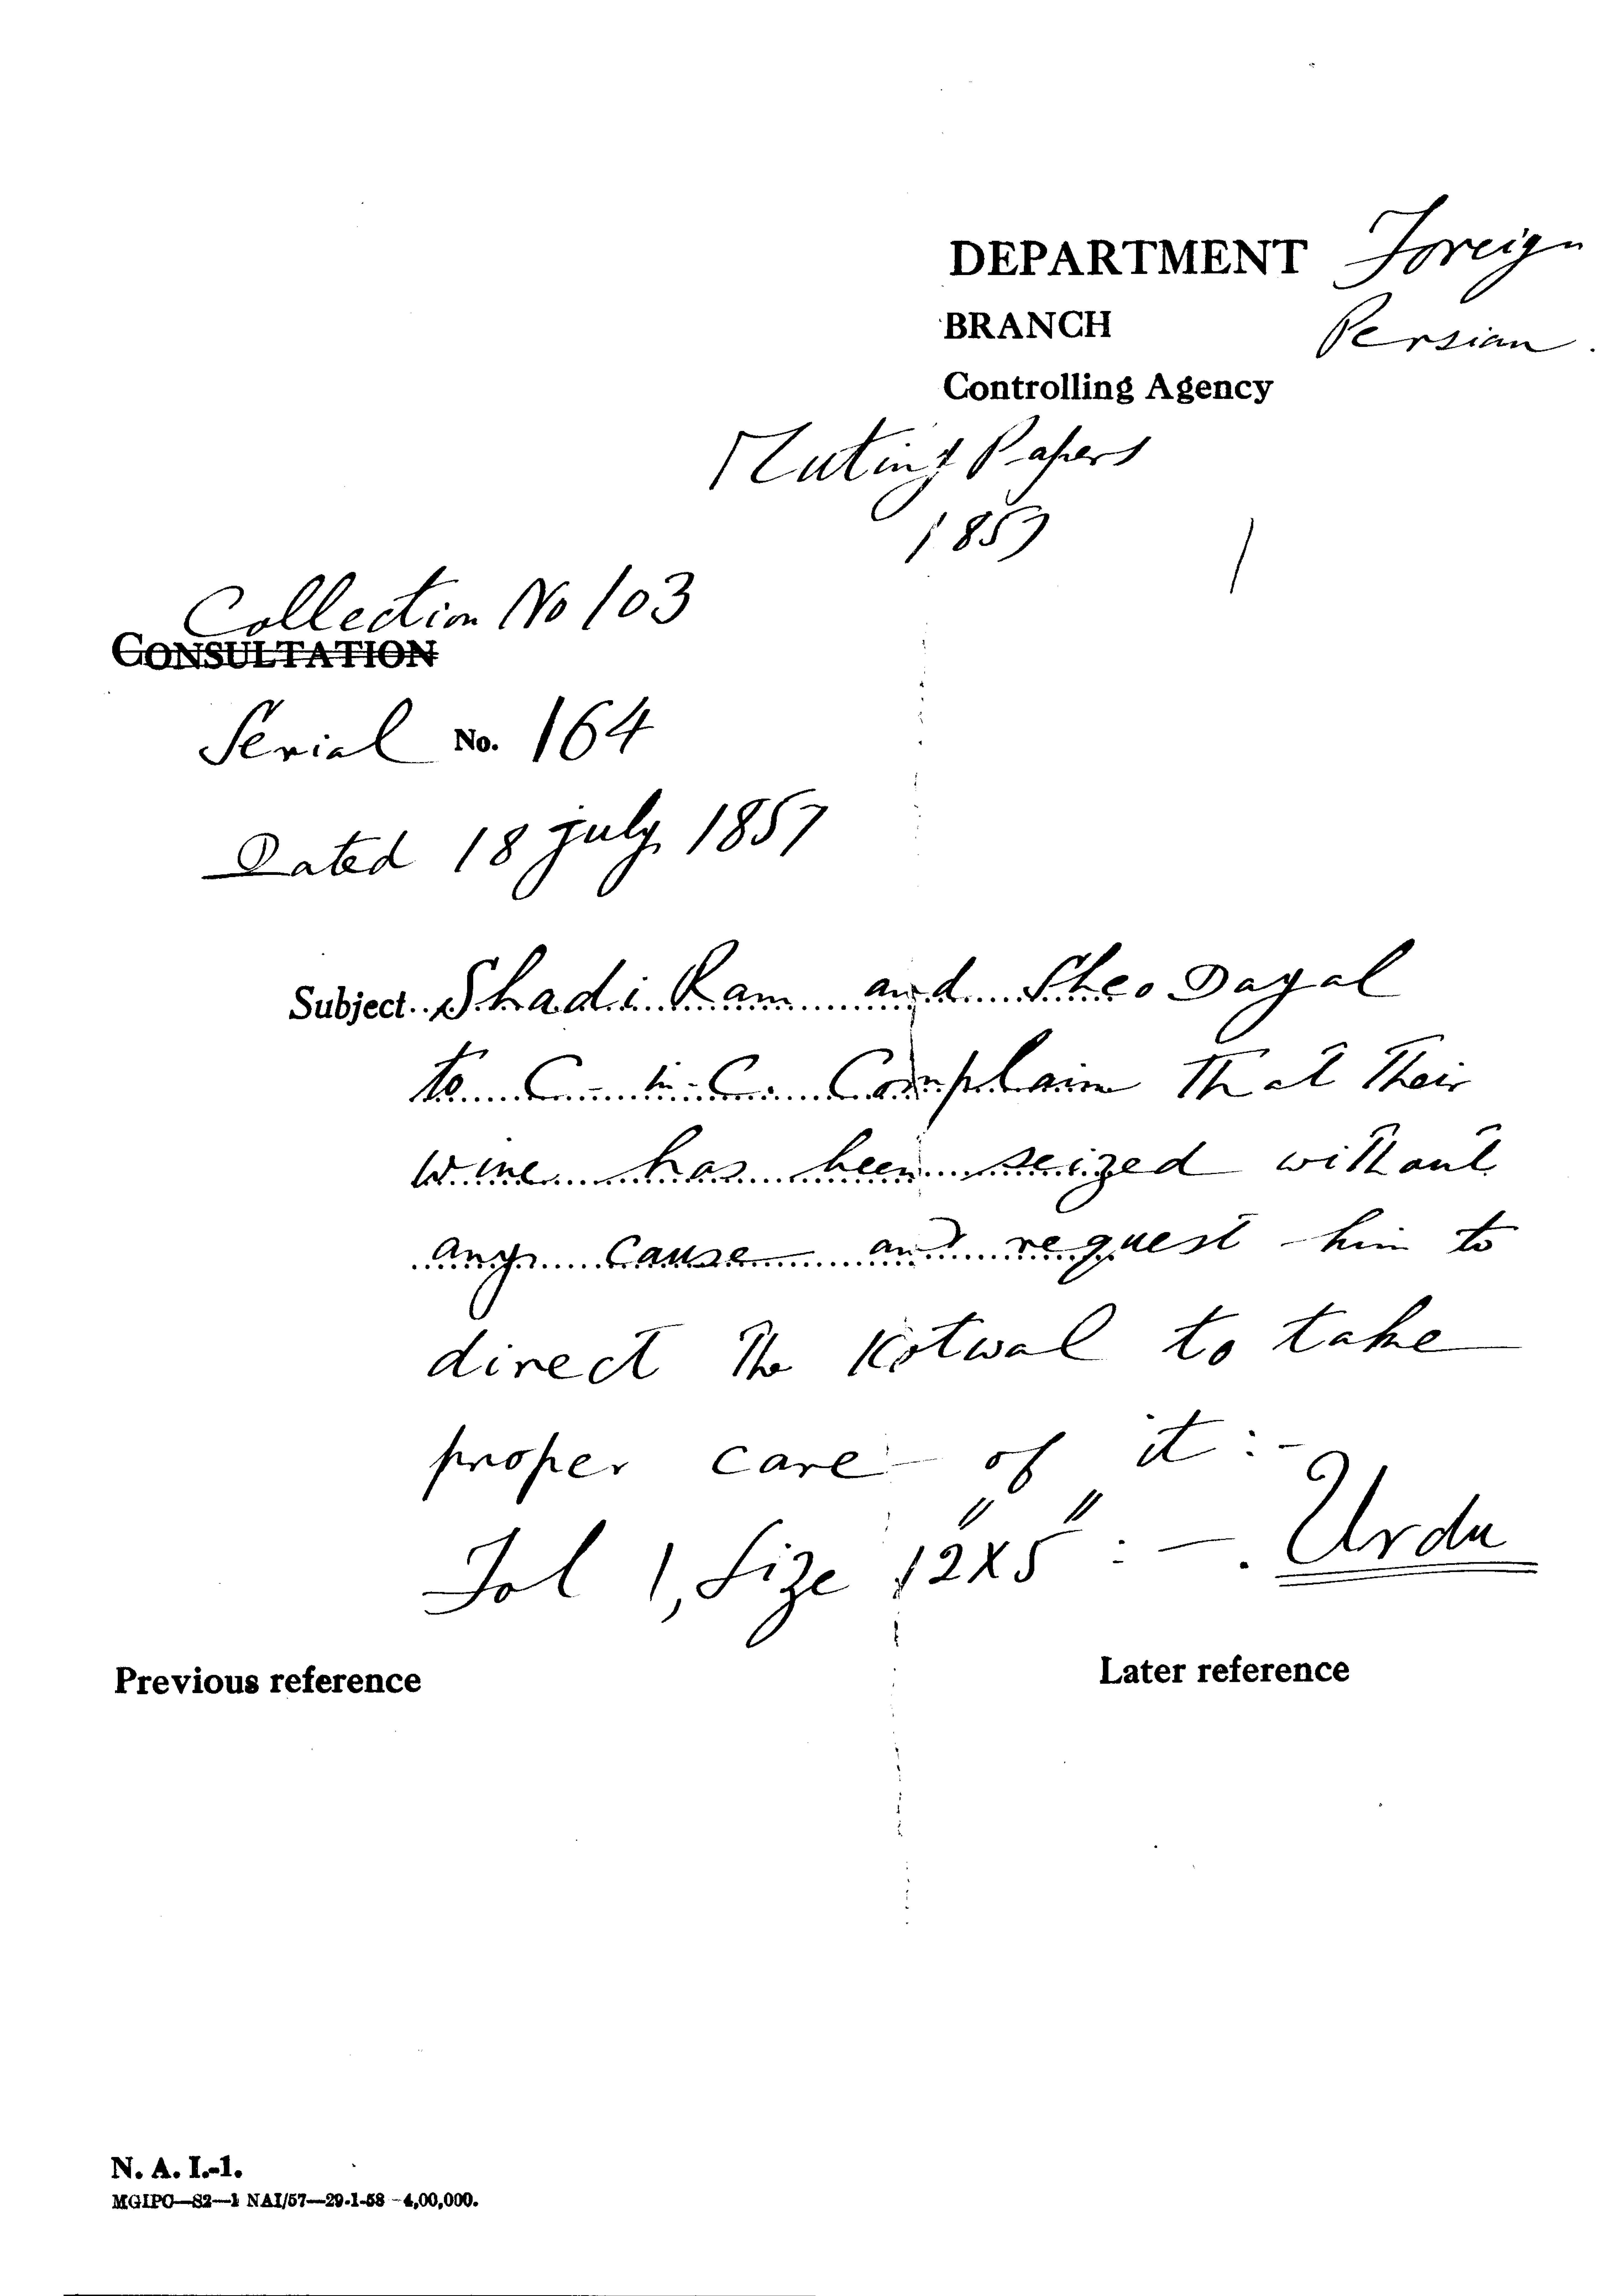 DEPARTMENT Foreign
BRANCH Persian.
Controlling Agency
Mutiny Papers
1857
Collection No 103
CONSULTATION
Serial No. 164
Dated 18 july 1857
Subject Shadi Ram and Sheo Dayal
to C-in-C. Complain that their
wine has been seized without
any cause and request him to
direct the Kotwal to take
proper care of it :-
Fol 1, Size 12"X5" :-. Urdu
Previous reference
Later reference
N. A. I.-1.
MGIPC—S2—1 NAI/57—29-1-58—4,00,000.